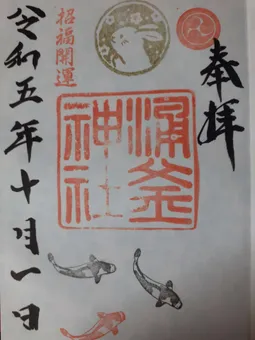 奉拝
涌釜
神社
招福開運
令和五年十月一日